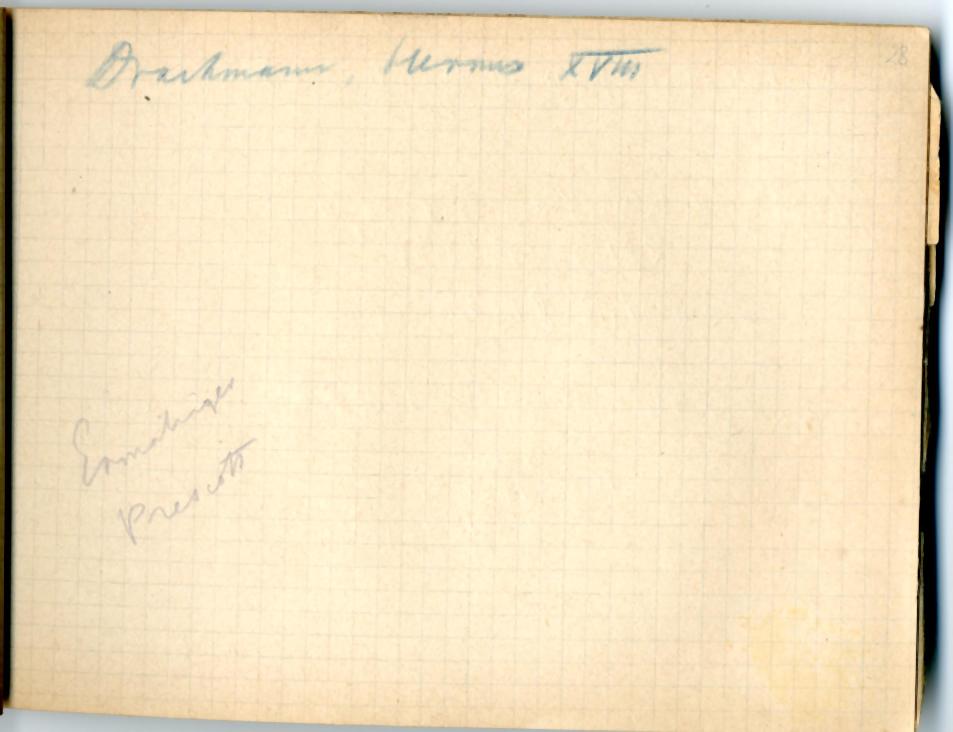 Drachmann, Hermes XVIII
28
Ermatinger
Prescott